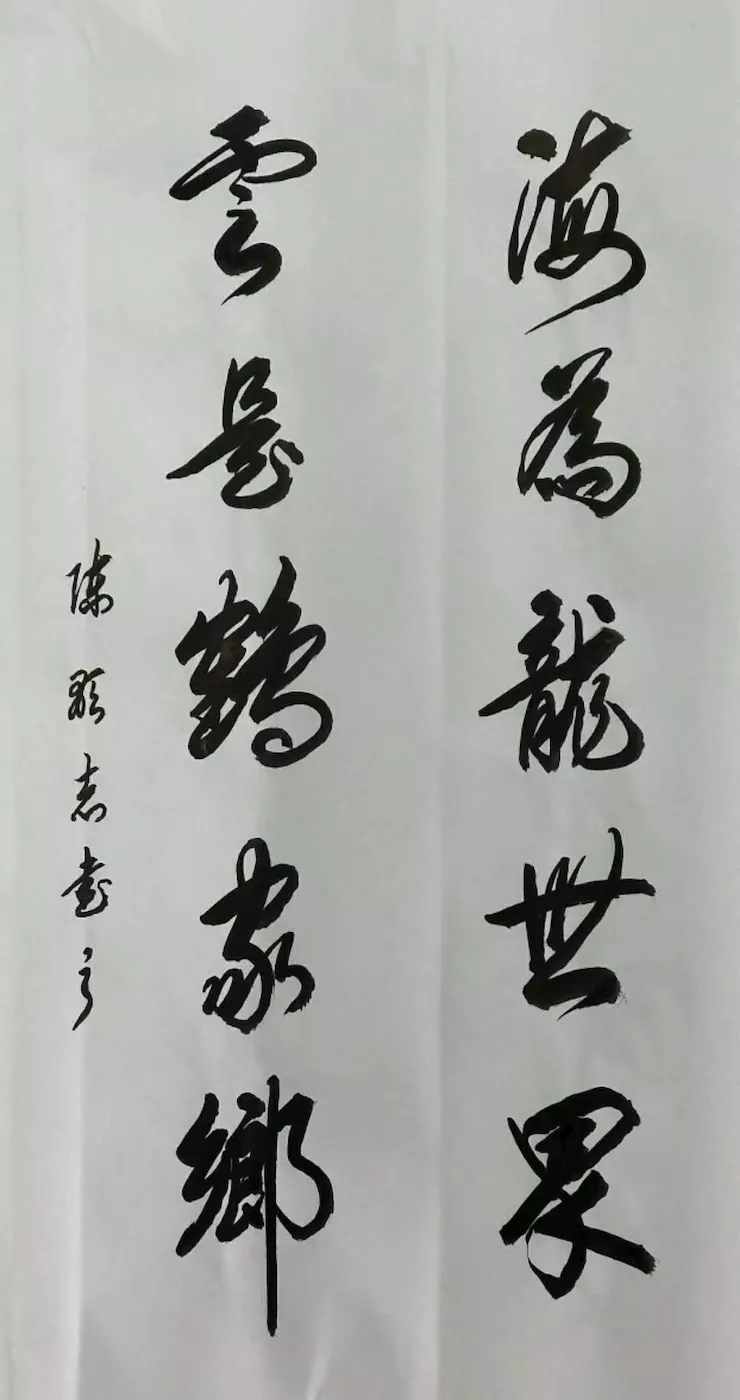 海為龍世界
雲是鶴家鄉
陳 志書